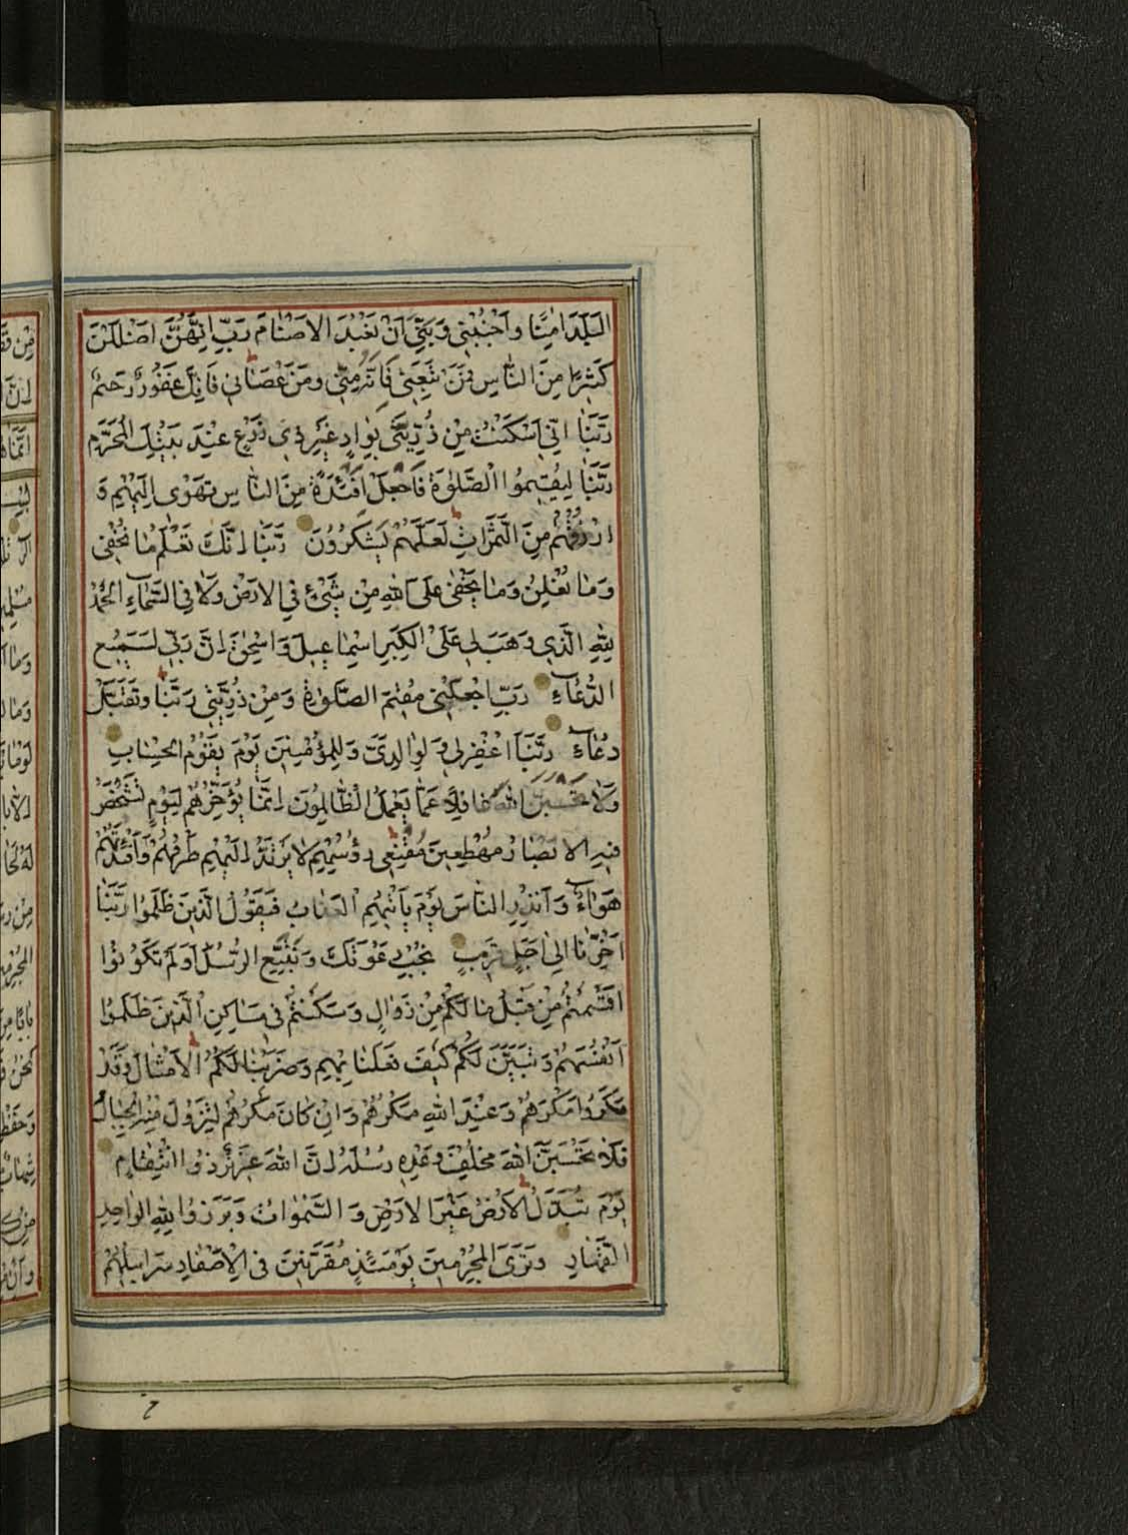 البَلَدَ اٰمِنًا وَاجْنُبْنِي وَبَنِيَّ اَنْ نَعْبُدَ الاَصْنٰامَ رَبِّ اِنَّهُنَّ اَضْلَلْنَ
كَثِيرًا مِنَ النّٰاسِ فَمَنْ تَبِعَنِي فَاِنَّهُ مِنِّي وَمَنْ عَصٰانِي فَاِنَّكَ غَفُورٌ رَحِيمٌ
رَبَّنٰا اِنِّي اَسْكَنْتُ مِنْ ذُرِّيَّتِي بِوٰادٍ غَيْرِ ذِي زَرْعٍ عِنْدَ بَيْتِكَ المُحَرَّمِ
رَبَّنٰا لِيُقِيمُوا الْصَّلٰوةَ فَاجْعَلْ اَفْئِدَةً مِنَ النّٰاسِ تَهْوِي اِلَيْهِمْ وَ
ارْزُقْهُمْ مِنَ الثَّمَرٰاتِ لَعَلَّهُمْ يَشْكُرُونَ رَبَّنٰا اِنَّكَ تَعْلَمُ مٰا نُخْفِي
وَمٰا نُعْلِنُ وَمٰا يَخْفٰى عَلَى اللهِ مِنْ شَيْءٍ فِي الاَرْضِ وَلاٰ فِي السَّمٰاءِ الحَمْدُ
لِلّٰهِ الَّذِي وَهَبَ لِي عَلَى الكِبَرِ اِسْمٰاعِيلَ وَاِسْحٰقَ اِنَّ رَبِّي لَسَمِيعُ
الدُّعٰاءِ رَبِّ اجْعَلْنِي مُقِيمَ الصَّلٰوةِ وَمِنْ ذُرِّيَّتِي رَبَّنٰا وَتَقَبَّلْ
دُعٰاءِ رَبَّنَا اغْفِرْ لِي وَلِوٰالِدَيَّ وَلِلْمُؤْمِنِينَ يَوْمَ يَقُومُ الحِسٰابُ
وَلاٰ تَحْسَبَنَّ اللهَ غٰافِلاً عَمّٰا يَعْمَلُ الظّٰالِمُونَ اِنَّمٰا يُؤَخِّرُهُمْ لِيَوْمٍ تَشْخَصُ
فِيهِ الاَبْصٰارُ مُهْطِعِينَ مُقْنِعِي رُؤُسِهِمْ لاٰ يَرْتَدُّ اِلَيْهِمْ طَرْفُهُمْ وَاَفْئِدَتُهُمْ
هَوٰاءٌ وَاَنْذِرِ النّٰاسَ يَوْمَ يَأْتِيهِمُ العَذٰابُ فَيَقُولُ الَّذِينَ ظَلَمُوا رَبَّنٰا
اَخِّرْنٰا اِلٰى اَجَلٍ قَرِيبٍ نُجِبْ دَعْوَتَكَ وَنَتَّبِعِ الرُّسُلَ اَوَلَمْ تَكُونُوا
اَقْسَمْتُمْ مِنْ قَبْلُ مٰا لَكُمْ مِنْ زَوٰالٍ وَسَكَنْتُمْ فِي مَسٰاكِنِ الَّذِينَ ظَلَمُوا
اَنْفُسَهُمْ وَتَبَيَّنَ لَكُمْ كَيْفَ فَعَلْنٰا بِهِمْ وَضَرَبْنٰا لَكُمُ الاَمْثٰالَ وَقَدْ
مَكَرُوا مَكْرَهُمْ وَعِنْدَ اللهِ مَكْرُهُمْ وَاِنْ كٰانَ مَكْرُهُمْ لِتَزُولَ مِنْهُ الجِبٰالُ
فَلاٰ تَحْسَبَنَّ اللهَ مُخْلِفَ وَعْدِهِ رُسُلَهُ اِنَّ اللهَ عَزِيزٌ ذُو انْتِقٰامٍ
يَوْمَ تُبَدَّلُ الاَرْضُ غَيْرَ الاَرْضِ وَالسَّمٰوٰاتُ وَبَرَزُوا لِلّٰهِ الوٰاحِدِ
القَهّٰارِ وَتَرَى المُجْرِمِينَ يَوْمَئِذٍ مُقَرَّنِينَ فِي الاَصْفٰادِ سَرٰابِيلُهُمْ